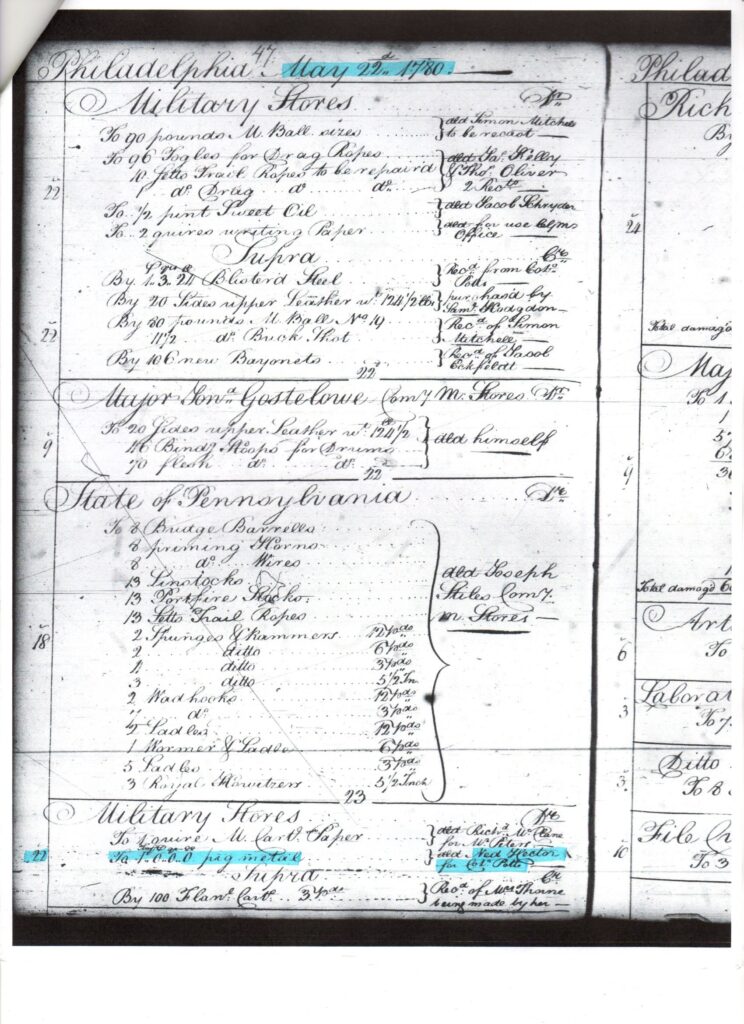 47
Philadelphia May 22d 1780
Military Stores Dr
To 90 pounds M. Ball sizes } dld Simon Mitchell to be recast
To 96 Togles for Drag Ropes } dld Jas. Kelly
10 Setts Trail Ropes to be repaird & Thos. Oliver
22 do Drag do do 2 Rects
To 1/2 pint Sweet Oil } dld Jacob Schryder
To 2 quires writing Paper } dld for use Office
Supra Cr
By 1.3.24 Blisterd Steel } Recd from Colo Potts
By 20 Sides upper Leather wt 124 1/2 lbs } purchasd by Saml Hodgdon
By 80 pounds M. Ball No 19 } Recd of Simon
22 11 1/2 do Buck Shot Mitchell
By 106 new Bayonets } Recd of Jacob Eckfeldt
22
Major Jona Gostelowe Comy M. Stores Dr
To 20 Sides upper Leather wt 124 1/2 } dld himself
9 46 Bindg Hoops for Drums
70 flesh do do
22
State of Pennsylvania Dr
To 8 Budge Barrells
8 priming Horns
8 do Wires
13 Linstocks } dld Joseph
13 Portfire Stocks Stiles Comy
13 Setts Trail Ropes M. Stores
18 2 Spunges & Rammers 12 pds
2 ditto 6 pds
4 ditto 3 pds
3 ditto 5 1/2 In
2 Wadhooks 12 pds
" do 3 pds
Ladles 12 pds
1 Wormer & Ladle 6 pds
5 Ladles 3 pds
3 Royal Howitzers 5 1/2 Inch
23
Military Stores Dr
To 1 quire M. Cart. Paper } dld Richd McClane for Mr Peters
22 To 1.0.0.0 pig metal } dld Ned Hector for Colo Potts
Supra Cr
By 100 Flanl Carts 3 pds } Recd of Mrs Thorne being made by her
Philad
Rich
By
24
Total damagd
Maj
To 1
1
5
6
9 30
Total damagd 6
Art
6 To
Laborat
3 To 7
Ditto
3 To 8
File
10 To 3